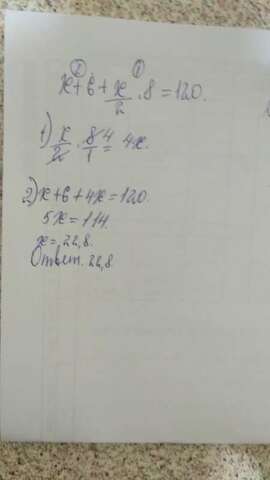 ② ①
x+6+x/2·8=120.
1) x/2·8/1 4= 4x.
2) x+6+4x=120.
5x=114.
x=22,8.
Ответ. 22,8.